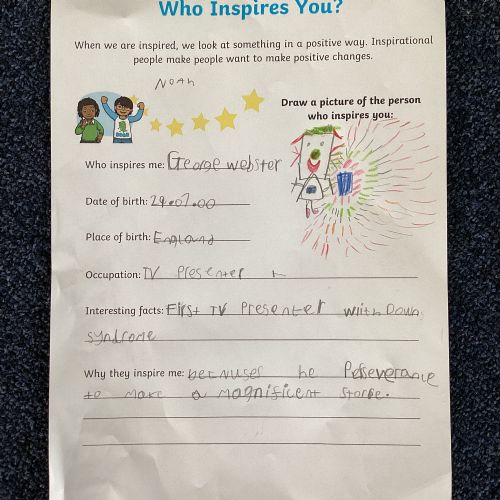 Who Inspires You?
When we are inspired, we look at something in a positive way. Inspirational
people make people want to make positive changes.
Noah
Draw a picture of the person
who inspires you:
Who inspires me: George webster
Date of birth: 29.07.00
Place of birth: England
Occupation: TV Presenter
Interesting facts: First TV Presenter with Down
syndrome
Why they inspire me: becauses he Perseverance
to make a magnificent storie.